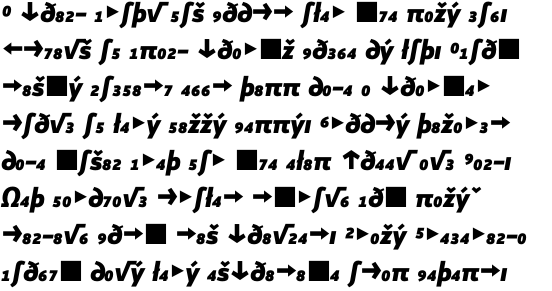 ⁰ ↓ð₈₂₋ ₁‣∫þ√ ₅∫š ₉ðð→→ ∫ł₄‣ ■₇₄ π₀žý ₃∫₆ı
←→₇₈√š ∫₅ ₁π₀₂₋ ↓ð₀‣■ž ₉ð₃₆₄ ∂ý ł∫þı ⁰₁∫ð■
→₈š■ý ₂∫₃₅₈→₇ ₄₆₆→ þ₈ππ ∂₀₋₄ ₀ ↓ð₀‣■₄‣
→∫ð√₃ ∫₅ ł₄‣ý ₅₈žžý ₉₄ππýı ⁶‣ð∂→ý þ₈ž₀‣₃→
∂₀₋₄ ■∫š₈₂ ₁‣₄þ ₅∫‣ ■₇₄ ₄ł₈π ↑ð₄₄√ ₀√₃ ⁹₀₂₋ı
Ω₄þ ₅₀‣∂₇₀√₃ →‣∫ł₄→ →■‣∫√₆ ₁ð■ π₀žýˇ
→₈₂₋₈√₆ ₉ð→■ →₈š ↓ð₈√₂₄→ı ²‣₀žý ⁵‣₄₃₄‣₈₂₋₀
₁∫ð₆₇■ ∂₀√ý ł₄‣ý ₄š↓ð₈→₈■₄ ∫→₀π ₉₄þ₄π→ı